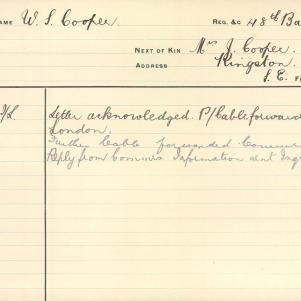 NAME W. S. Cooper. REG. &C 48th Ba
NEXT OF KIN Mrs J. Cooper.
ADDRESS Kingston.
S. E.
/L. Letter acknowledged. P/Cable forward
London.
Further Cable forwarded Commr
Reply from Commrs Information dent Inq